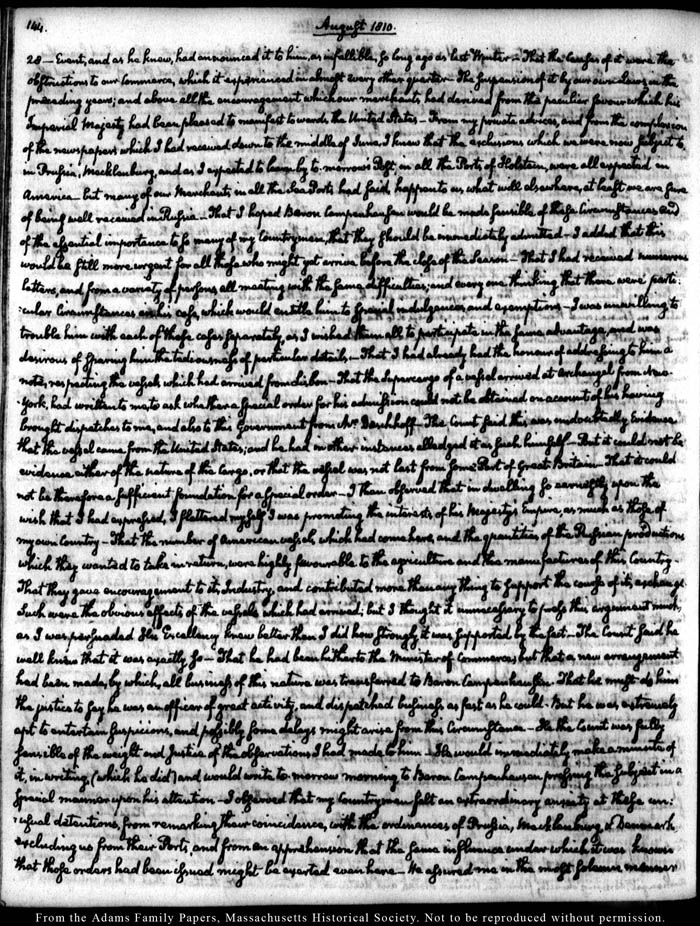 144.
August 1810.
28 — Event, and as he knew, had announced it to him, as infallible, so long ago as last Winter — That the Causes of it were the
obstructions to our Commerce, which it experienced in almost every other quarter — The suspension of it by our own Laws, in the
preceding years; and above all the encouragement which our merchants had derived from the peculiar favour which his
Imperial Majesty had been pleased to manifest towards the United States — From my private advices, and from the complexion
of the newspapers which I had received down to the middle of June, I knew that the exclusions which we were now subject to,
in Prussia, Mecklenburg, and as I expected to learn by to-morrow's Post, in all the Ports of Holstein, were all expected in
America — but many of our Merchants in all the Sea Ports had said, happen to us what will elsewhere, at least we are sure
of being well received in Russia — That I hoped Baron Campenhausen would be made sensible of these Circumstances and
of the essential importance to so many of my Countrymen, that they should be immediately admitted — I added that this
would be still more urgent for all those who might yet arrive before the close of the Season — That I had received numerous
letters, and from a variety of persons all meeting with the same difficulties; and every one thinking that there were parti:
:cular Circumstances in his case, which would entitle him to special indulgences, and exemptions — I was unwilling to
trouble him with each of these cases separately, as I wished them all to participate in the same advantage, and was
desirous of sparing him the tediousness of particular details — That I had already had the honour of addressing to him a
note, respecting the vessels which had arrived from Lisbon — That the supercargo of a vessel arrived at Archangel from New-
York, had written to me, to ask whether a special order for his admission could not be obtained on account of his having
brought dispatches to me, and also to this Government from Mr. Daschkoff. The Count said this was undoubtedly Evidence
that the vessel came from the United States; and he had in other instances alledged it as such himself. But it could not be
evidence either of the nature of the Cargo, or that the vessel was not last from some Port of Great Britain — That it could
not be therefore a sufficient foundation for a special order — I then observed that in dwelling so earnestly upon the
wish that I had expressed, I flattered myself I was promoting the interests of his Majesty's Empire, as much as those of
my own Country — That the number of American vessels, which had come here, and the quantities of the Russian productions
which they wanted to take in return, were highly favourable to the agriculture and the manufactures of this Country —
That they gave encouragement to its Industry, and contributed more than any thing to support the course of its exchange.
Such were the obvious effects of the vessels which had arrived; but I thought it unnecessary to press this argument much,
as I was persuaded His Excellency knew better than I did how strongly it was supported by the fact — The Count said he
well knew that it was exactly so — That he had been hitherto the Minister of Commerce; but that a new arrangement
had been made, by which, all business of this nature was transferred to Baron Campenhausen. That he must do him
the justice to say he was an officer of great activity, and dispatched business as fast as he could. But he was extremely
apt to entertain suspicions, and possibly some delays might arise from this Circumstance — He the Count was fully
sensible of the weight and Justice of the observations I had made to him — He would immediately make a minute of
it, in writing, (which he did) and would write to-morrow morning to Baron Campenhausen pressing the subject in a
special manner upon his attention — I observed that my Countrymen felt an extraordinary anxiety at these un:
:usual detentions, from remarking their coincidence, with the ordinances of Prussia, Mecklenburg & Denmark,
excluding us from their Ports, and from an apprehension that the same influence under which it was known
that those orders had been issued might be exerted even here — He assured me in the most solemn manner
From the Adams Family Papers, Massachusetts Historical Society. Not to be reproduced without permission.